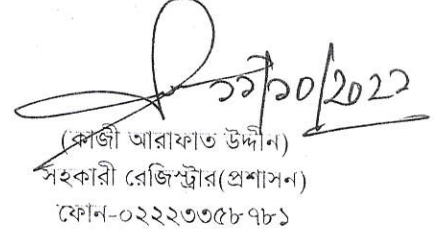 ১১/১০/২০২২
(কাজী আরাফাত উদ্দীন)
সহকারী রেজিস্ট্রার(প্রশাসন)
ফোন-০২২২৩৩৫৮৭৮১